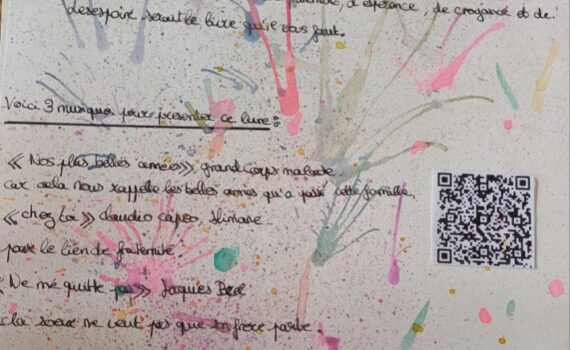 d'espérance, de croyance et de
desespoir serait le livre qu'il vous faut.
Voici 3 musiques pour présenter ce livre :
« Nos plus belles années » grand corps malade
car cela nous rappelle les belles années qu'a passé cette famille.
« chez toi » claudio capeo, slimane
pour le lien de fraternité.
« Ne me quitte pas » Jaques Brel
la soeur ne veut pas que son frère parte.